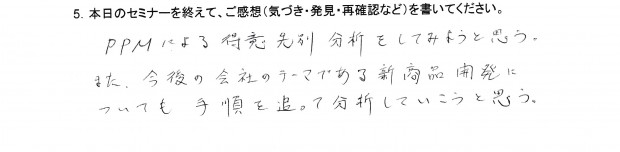 5. 本日のセミナーを終えて、ご感想(気づき・発見・再確認など)を書いてください。
PPMによる得意先別分析をしてみようと思う。
また、今後の会社のテーマである新商品開発に
ついても手順を追って分析していこうと思う。